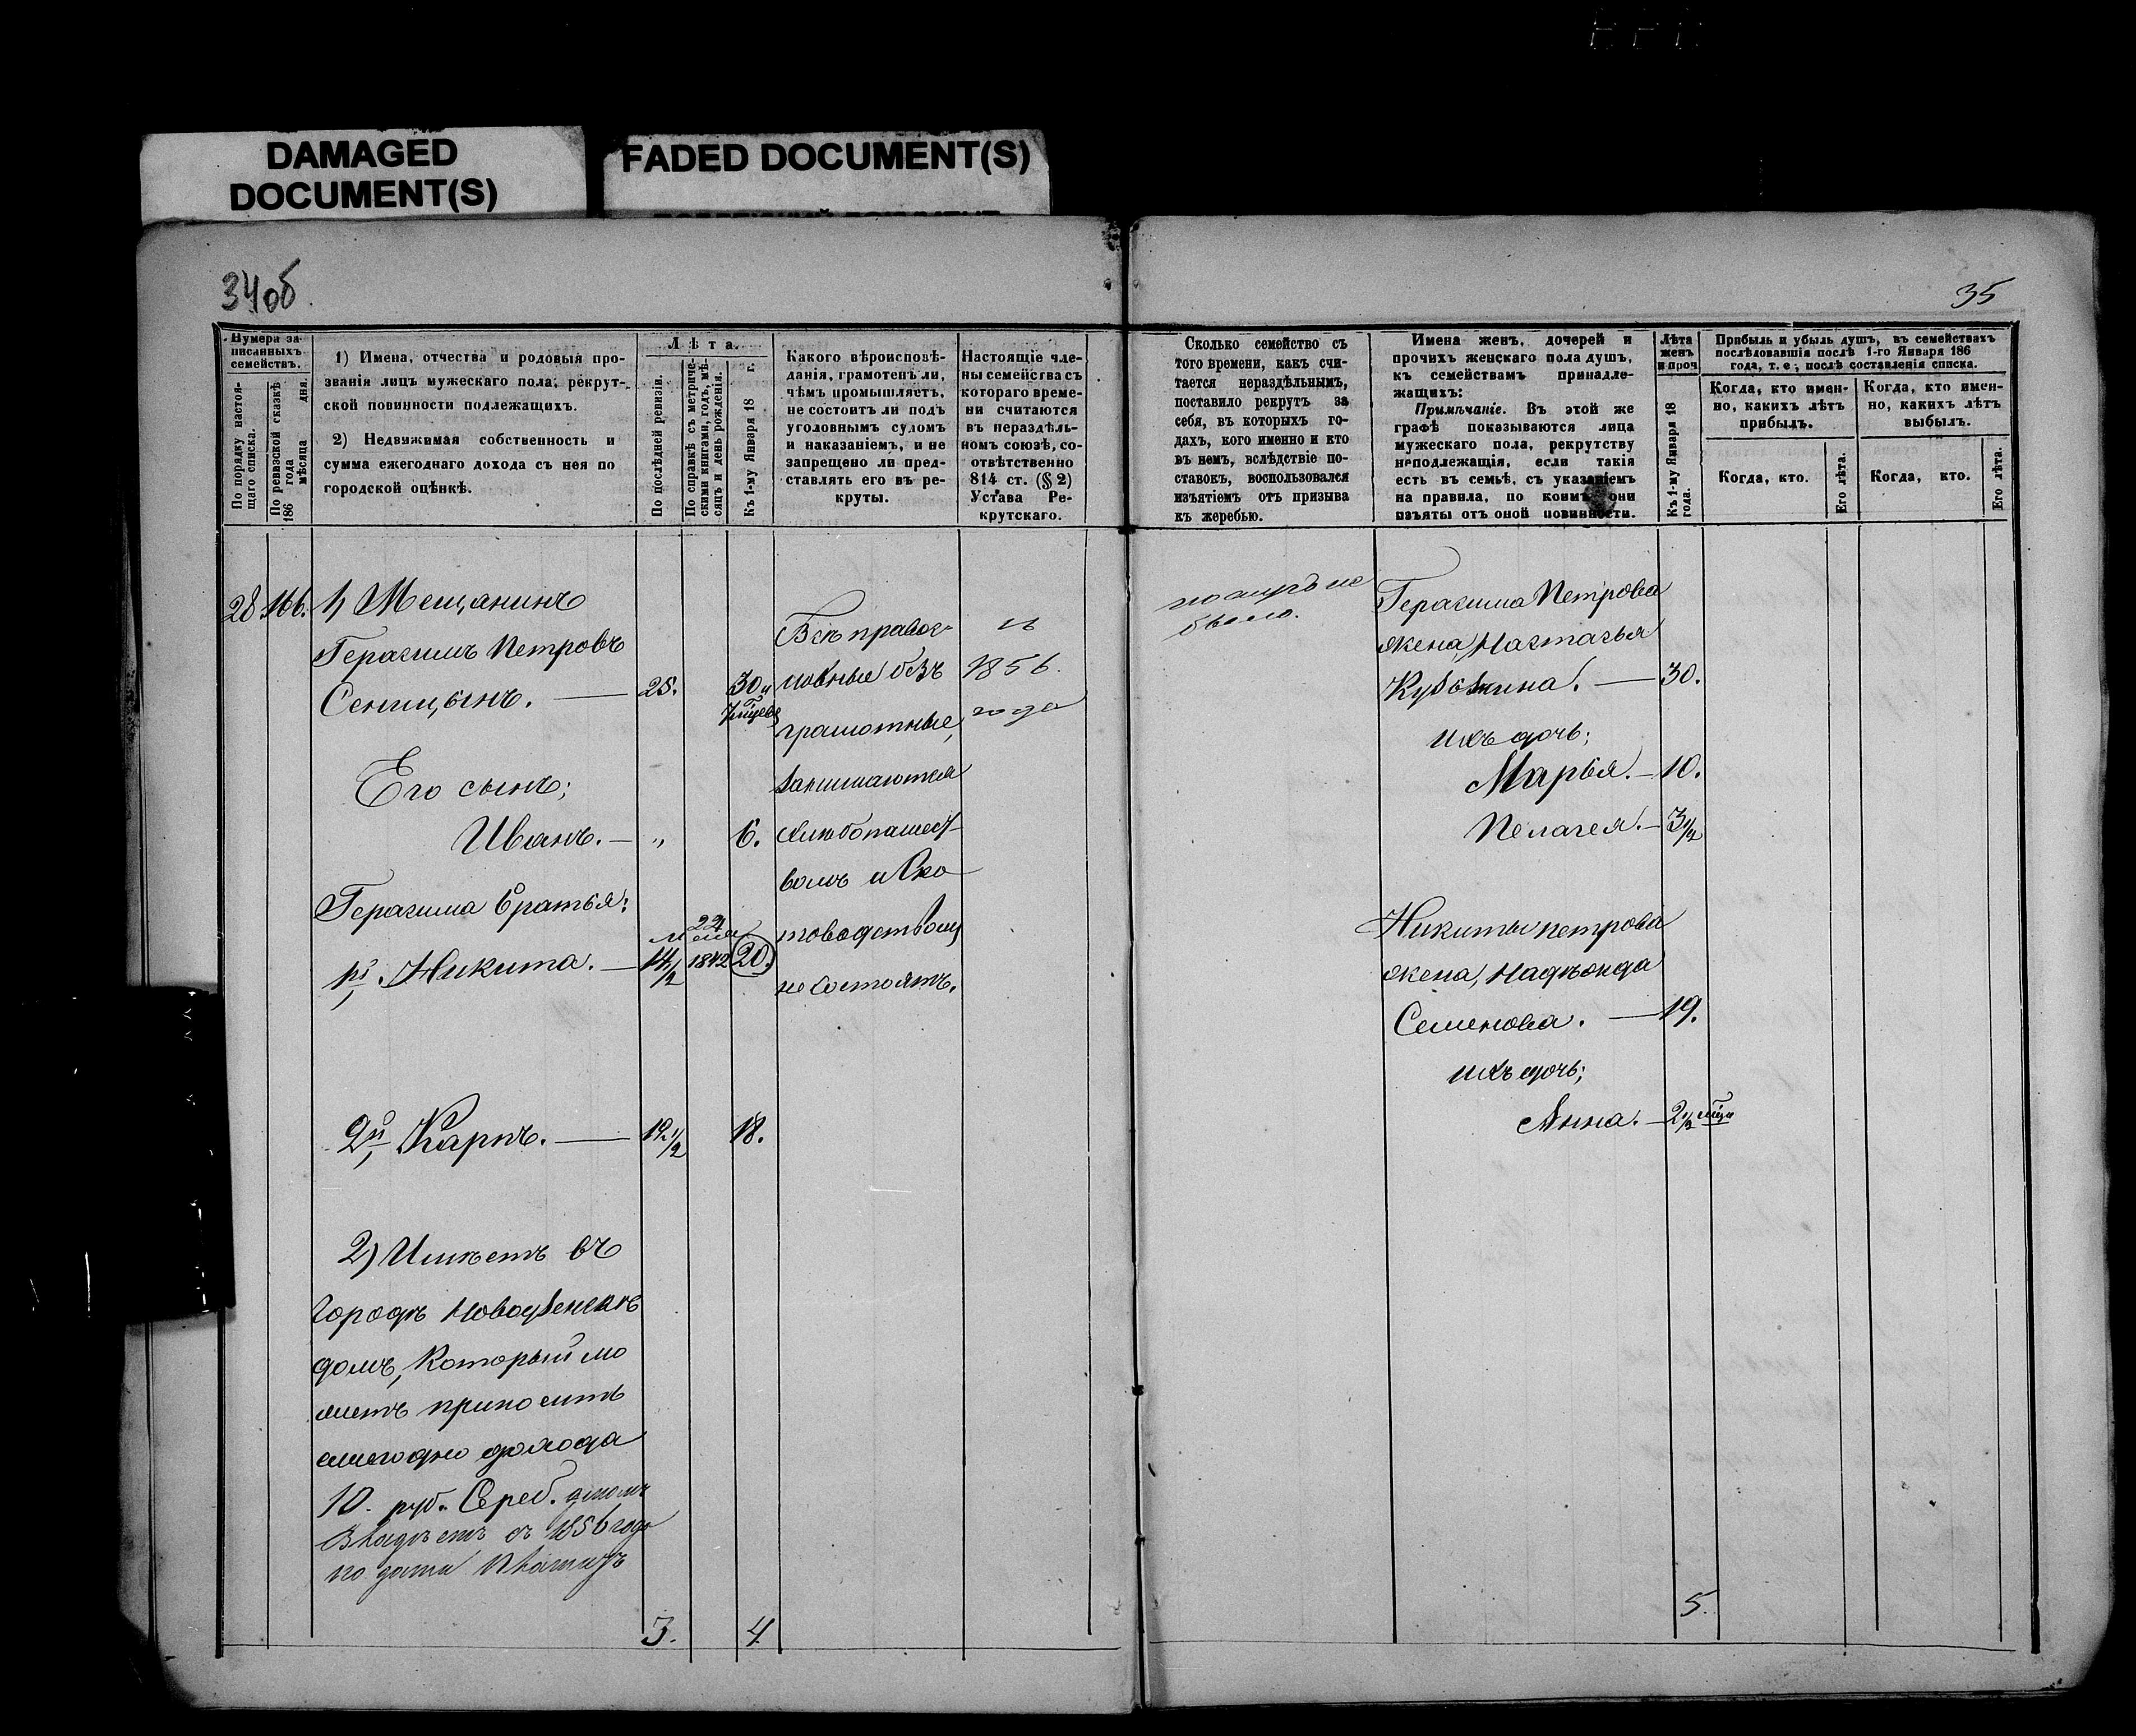 DAMAGED
DOCUMENT(S)
FADED DOCUMENT(S)
34об.
35
Нумера за-
писанныхъ
семействъ.
По порядку настоя-
щаго списка.
По ревизской сказкѣ
186 года мѣсяца дня.
1) Имена, отчества и родовыя про-
званія лицъ мужескаго пола, рекрут-
ской повинности подлежащихъ.
2) Недвижимая собственность и
сумма ежегоднаго дохода съ нея по
городской оцѣнкѣ.
Лѣта.
По послѣдней ревизіи.
По справкѣ съ метриче-
скими книгами, годъ, мѣ-
сяцъ и день рожденія.
Къ 1-му Января 18 г.
Какого вѣроисповѣ-
данія, грамотенъ ли,
чѣмъ промышляетъ,
не состоитъ ли подъ
уголовнымъ судомъ
и наказаніемъ, и не
запрещено ли пред-
ставлять его въ ре-
круты.
Настоящіе чле-
ны семейства съ
котораго време-
ни считаются
въ нераздѣль-
номъ союзѣ, со-
отвѣтственно
814 ст. (§ 2)
Устава Ре-
крутскаго.
Сколько семейство съ
того времени, какъ счи-
тается нераздѣльнымъ,
поставило рекрутъ за
себя, въ которыхъ го-
дахъ, кого именно и кто
въ немъ, вслѣдствіе по-
ставокъ, воспользовался
изъятіемъ отъ призыва
къ жеребью.
Имена женъ, дочерей и
прочихъ женскаго пола душъ,
къ семействамъ принадле-
жащихъ:
Примѣчаніе. Въ этой же
графѣ показываются лица
мужескаго пола, рекрутству
неподлежащія, если такія
есть въ семьѣ, съ указаніемъ
на правила, по коимъ они
изъяты отъ оной повинности.
Лѣта
женъ
и проч.
Къ 1-му Января 18
года.
Прибыль и убыль душъ, въ семействахъ
послѣдовавшія послѣ 1-го Января 186
года, т. е., послѣ составленія списка.
Когда, кто имен-
но, какихъ лѣтъ
прибылъ.
Когда, кто имен-
но, какихъ лѣтъ
выбылъ.
Когда, кто.
Его лѣта.
Когда, кто.
Его лѣта.
28 166. 1) Мещанинъ
Герасимъ Петровъ
Сеницынъ. — 25. 30
Его сынъ;
Иванъ. — „ 6.
Герасима братья:
22
1й Никита. — 14 1/2 1842 20.
2й Карпъ. — 12 1/2 18.
2) Имѣетъ въ
городѣ
домъ, который мо
жетъ приносить
ежегодно дохода
10. руб. Сереб.
Владѣетъ съ 1856 года
3. 4
Всѣ правос-
лавные без
грамотные,
занимаются
хлѣбопашест-
вомъ и Ско
товодствомъ
не состоятъ.
съ
1856.
года
не
было.
Герасима Петрова
жена, Настасья
— 30.
ихъ дочь;
Марья. — 10.
Пелагея. — 3 1/2
Никиты Петрова
жена, Надѣжда
Семенова. — 19.
ихъ дочь;
Анна. — 2 1/2 мѣся
5.